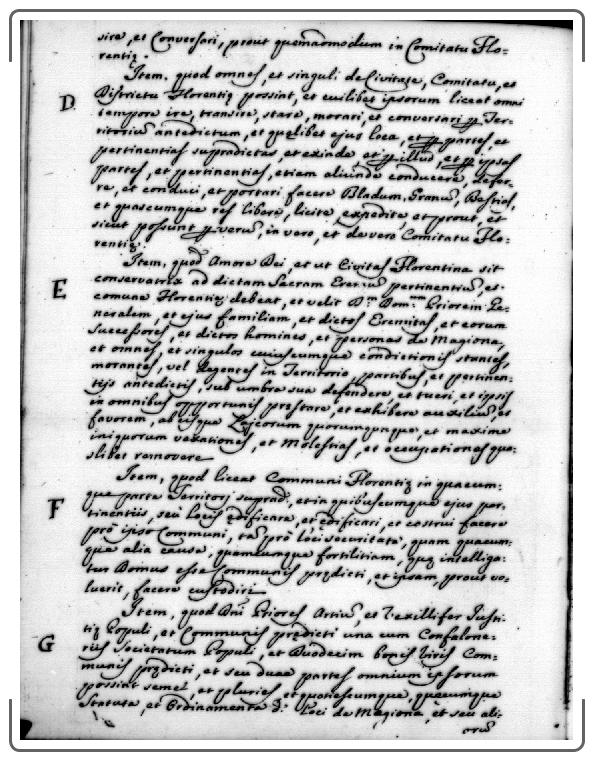 sire, et Conversari, prout quemadmodum in Comitatu Flo-
rentię.
Item, quod omnes, et singuli de Civitate, Comitatu, et
D Districtu Florentię possint, et cuilibet ipsorum liceat omni
tempore ire, transire, stare, morari, et conversari ꝑ Ter-
ritoriũ antedictum, et quęlibet ejus loca, et ꝑ partes, et
pertinentias supradictas, et exinde et ꝑ illud, et ꝑ ipsas
partes, et pertinentias, etiam aliunde conducere, defer-
re, et conduci, et portari facere Bladum, Granũ, Bestias,
et quascumque res libere, licite, expedite, et prout, et
sicut possunt ꝑ verũ, in vero, et de vero Comitatu Flo-
rentię.
Item, quod Amore Dei, et ut Civitas Florentina sit
E conservatrix ad dictam Sacram pertinentiũ, et
comune Florentię debeat, et velit Priorem Ge-
neralem, et ejus familiam, et dictos Eremitas, et eorum
Successores, et dictos homines, et personas de Magiona,
et omnes, et singulos cuiuscumque condictionis stantes,
morantes, vel degentes in Territorio partibus, et pertinen-
tijs antedictis, sub umbra sua defendere, et tueri, et ipsis
in omnibus opportunis prestare, et exhibere auxiliũ, et
favorem, absque quorumqunque, et maxime
iniquorum vexationes, et Molestias, et occupationes quo-
slibet removere
Item, quod liceat Communi Florentię in quacum-
F que parte Territorj suprad., et in quibuscumque ejus per-
tinentiis, seu locis ędificare, et ędificari, et costrui facere
prõ ipso Communi, tã prõ loci securitate, quam quacum-
que alia causa, quamcumque fortilitiam, quę intelliga-
tur Domus esse Communis prędicti, et ipsam, prout vo-
luerit, facere custodiri
Item, quod Dñi Priores Artiũ, et Vexillifer Justi-
tię Populi, et Communis prędicti una cum Confalone-
G riis Societatum Populi, et Duodecim bonis Viris Com-
munis prędicti, et seu duae partes omnium ipsorum
possint semel, et pluries, et quotiescumque, quęcumque
Statuta, et Ordinamenta d. Loci de Magiona, et seu ali-
orũ